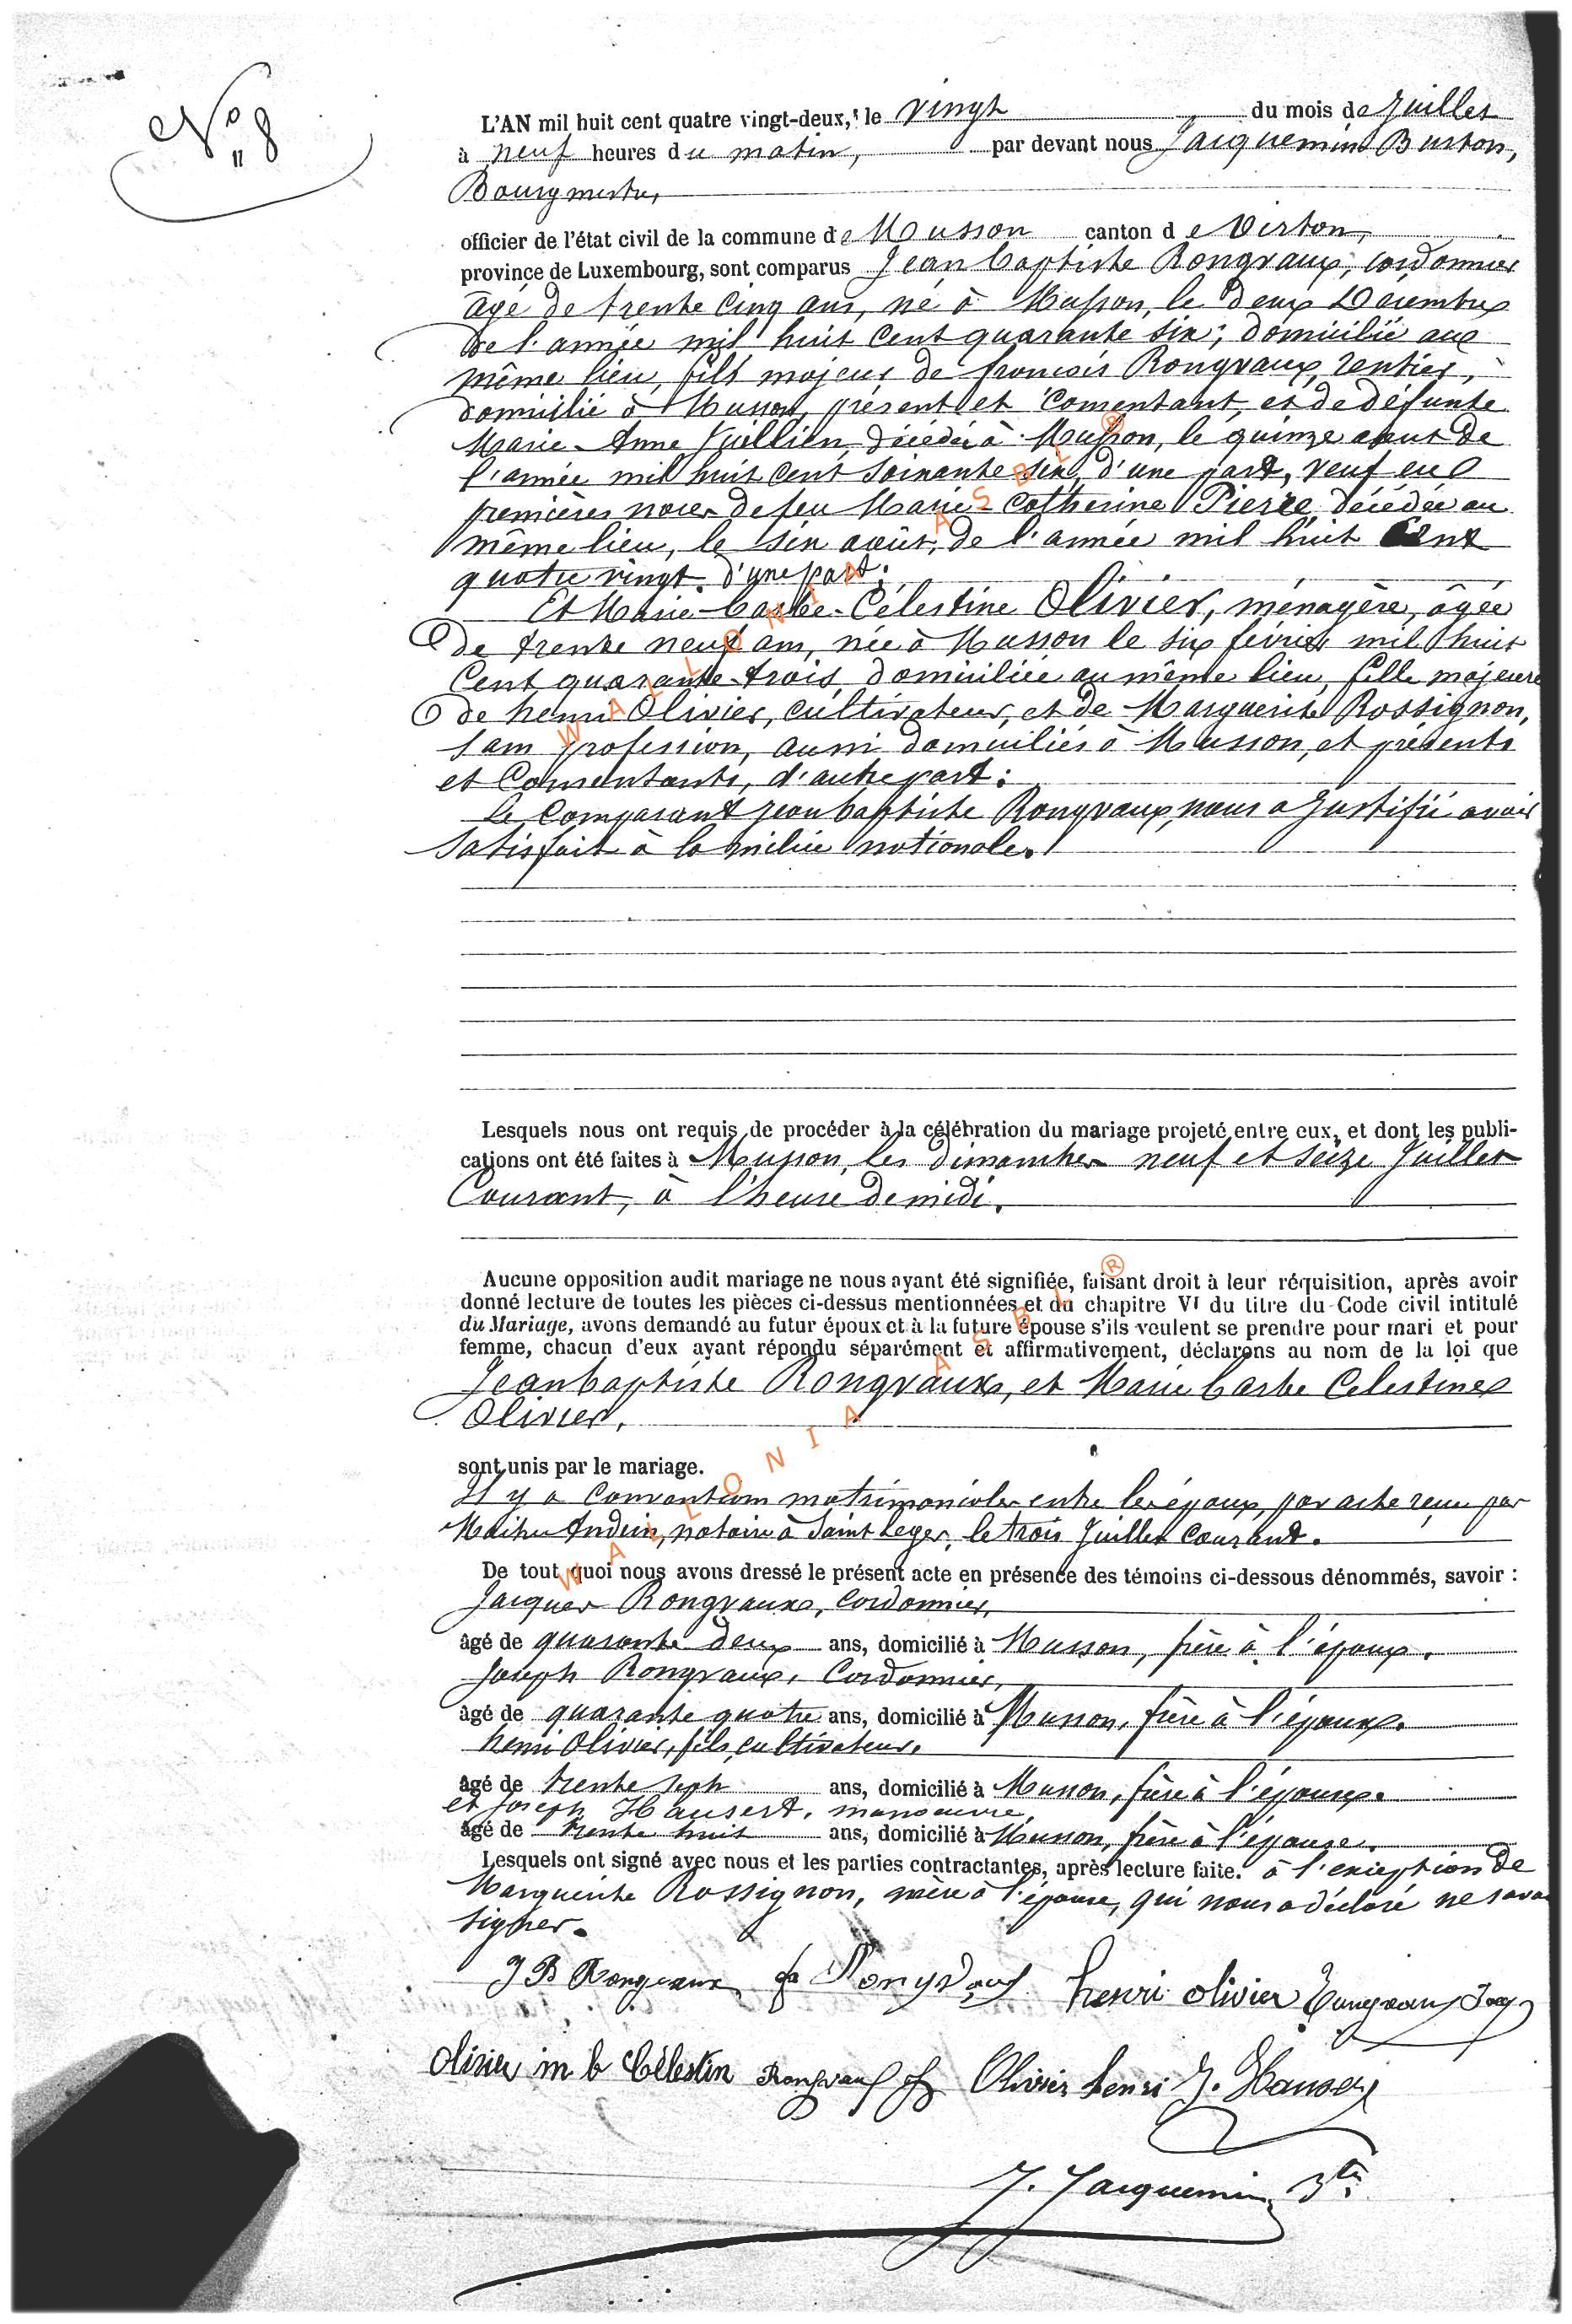 N° 8
L'AN mil huit cent quatre vingt-deux, le vingt du mois de Juillet
à neuf heures du matin, par devant nous Jacquemin Burton,
Bourgmestre,
officier de l'état civil de la commune de Musson canton de Virton,
province de Luxembourg, sont comparus Jean baptiste Rongvaux, cordonnier
âgé de trente cinq ans, né à Musson, le deux Décembre
de l'année mil huit cent quarante six; domicilié au
même lieu, fils majeur de francois Rongvaux, rentier,
domicilié à Musson, présent et consentant, et de défunte
Marie-Anne Juillien, décédée à Musson, le quinze aout de
l'année mil huit cent soixante six, d'une part, veuf en
premières noces de feu Marie-Catherine Pierre, décédée au
même lieu, le six août, de l'année mil huit Cent
quatre vingt d'une part;
Et Marie-barbe-Célestine Olivier, ménagère, âgée
de trente neuf ans, née à Musson le six février mil huit
Cent quarante-trois, domiciliée au même lieu, fille majeure
de henri Olivier, cultivateur, et de Marguerite Rossignon,
sans profession, aussi domiciliés à Musson, et présents
et Consentants, d'autre part:
le Comparant Jean baptiste Rongvaux, nous a Justifié avoir
satisfait à la milice nationale.
Lesquels nous ont requis de procéder à la célébration du mariage projeté entre eux, et dont les publi-
cations ont été faites à Musson, les dimanches neuf et seize Juillet
Courant, à l'heure de midi.
Aucune opposition audit mariage ne nous ayant été signifiée, faisant droit à leur réquisition, après avoir
donné lecture de toutes les pièces ci-dessus mentionnées et du chapitre VI du titre du Code civil intitulé
du Mariage, avons demandé au futur époux et à la future épouse s'ils veulent se prendre pour mari et pour
femme, chacun d'eux ayant répondu séparément et affirmativement, déclarons au nom de la loi que
Jean baptiste Rongvaux, et Marie barbe Celestine
Olivier,
sont unis par le mariage.
Il y a Convention matrimoniale entre les époux, par acte reçu par
Maitre Andrin, notaire à Saint Léger, le trois Juillet Courant.
De tout quoi nous avons dressé le présent acte en présence des témoins ci-dessous dénommés, savoir :
Jacques Rongvaux, Cordonnier,
âgé de quarante deux ans, domicilié à Musson, frère à l'époux.
Joseph Rongvaux, Cordonnier,
âgé de quarante quatre ans, domicilié à Musson, frère à l'époux.
henri Olivier, fils, cultivateur,
âgé de trente sept ans, domicilié à Musson, frère à l'épouse.
et Joseph Hausert, manoeuvre,
âgé de trente huit ans, domicilié à Musson, frère à l'épouse.
Lesquels ont signé avec nous et les parties contractantes, après lecture faite. à l'exception de
Marguerite Rossignon, mère à l'épouse, qui nous a déclaré ne savoi
signer.
J B Rongvaux fs Rongvaux henri olivier Rongvaux Jacq
Olivier m b Célestin Rongvaux Olivier henri J. Hausert
J. Jacquemin Bton
WALLONIA ASBL ®
WALLONIA ASBL ®